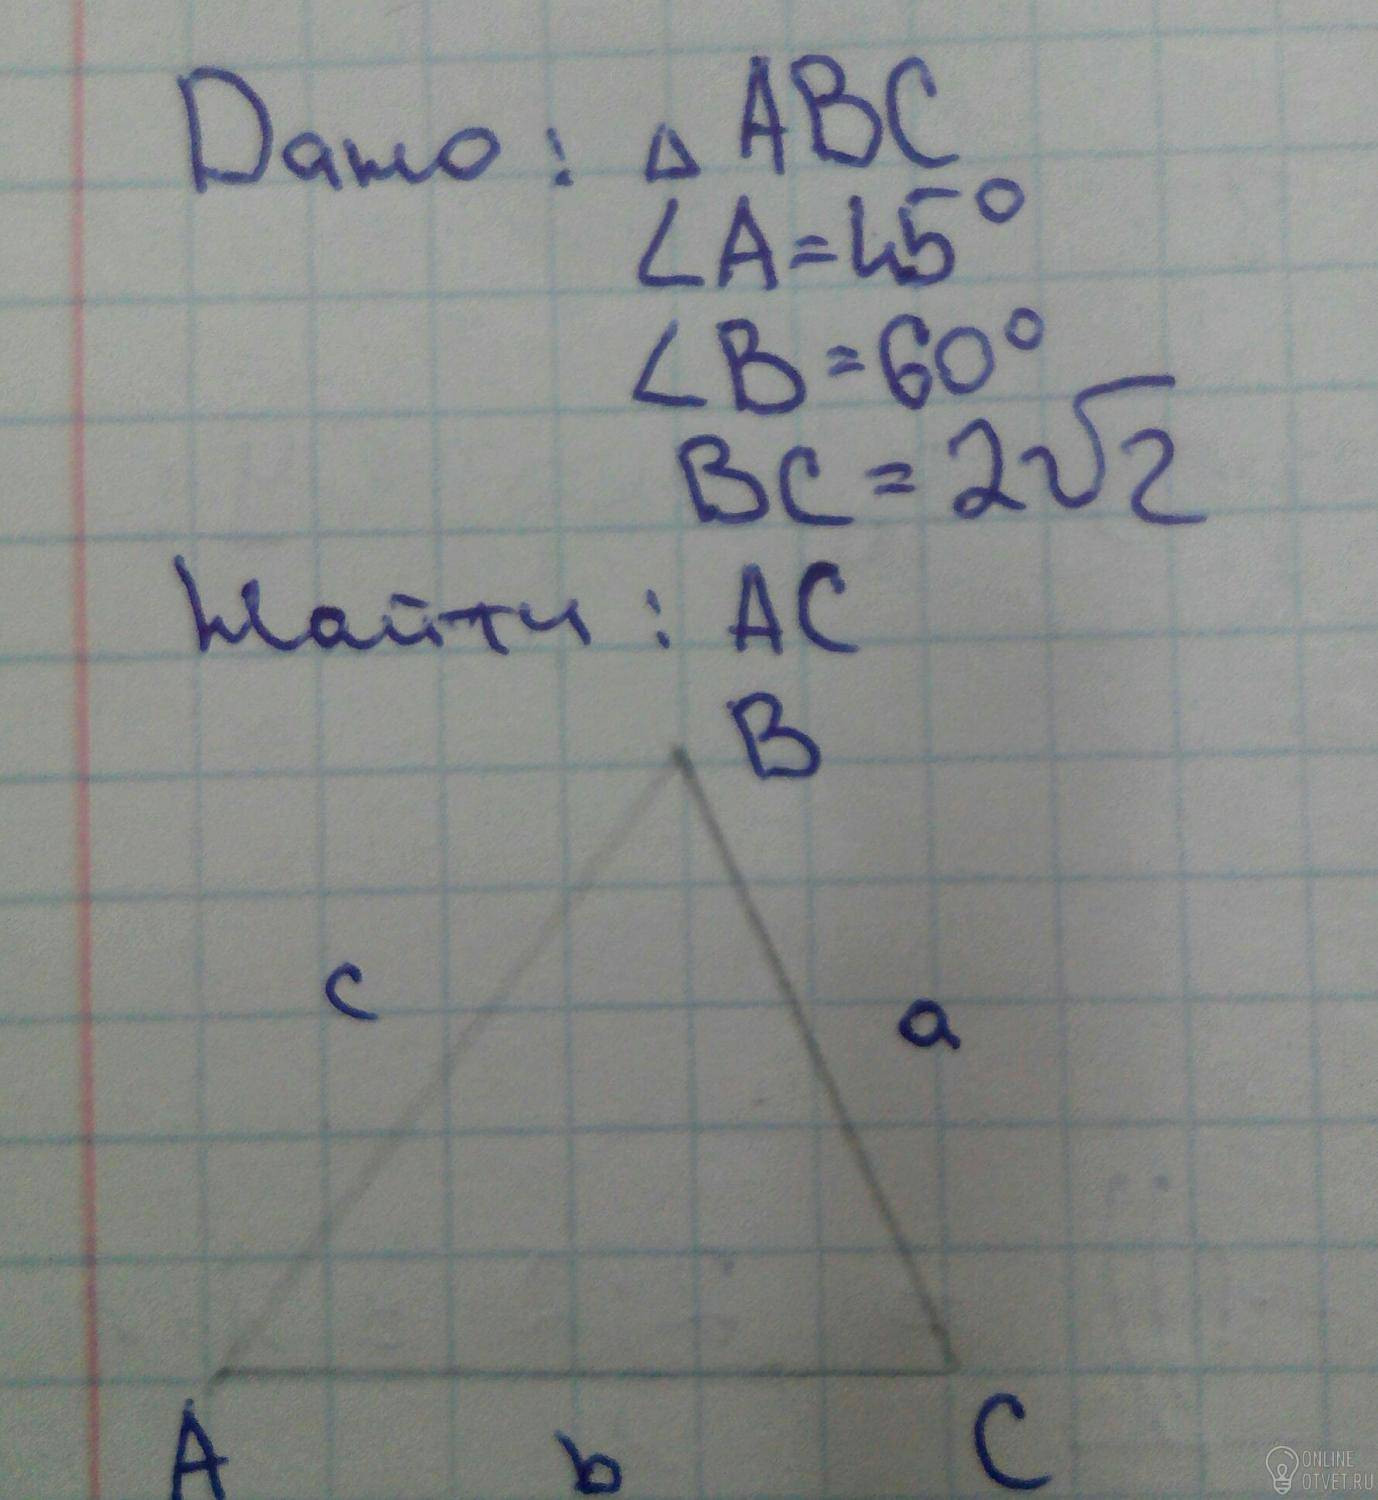 Дано: △ ABC
∠A=45°
∠B=60°
BC=2√2
Найти: AC
B
c
a
A
b
C
ONLINE
OTVET.RU